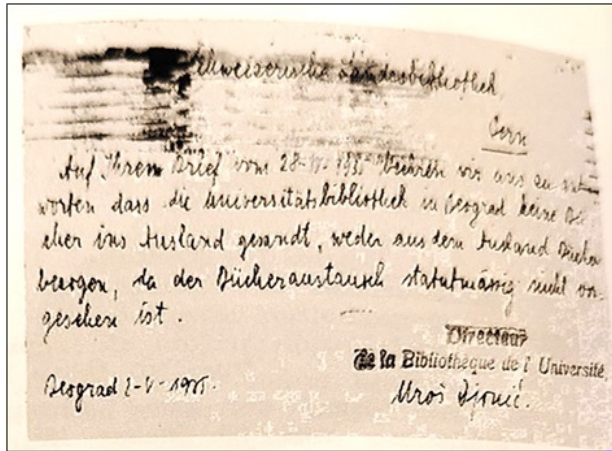 Schweizerische Landesbibliothek,
Bern
Auf Ihrem Brief vom 28-IV-1935 beehren wir uns zu ant
worten dass die Universitätsbibliothek in Beograd keine Bü
cher ins Ausland gesandt, weder aus dem Ausland Bücher
bezogen, da der Bücheraustausch statutmässig nicht vor-
gesehen ist.
Directeur
de la Bibliothèque de l'Université.
Beograd 2-V-1935.
Uroš Djonić.